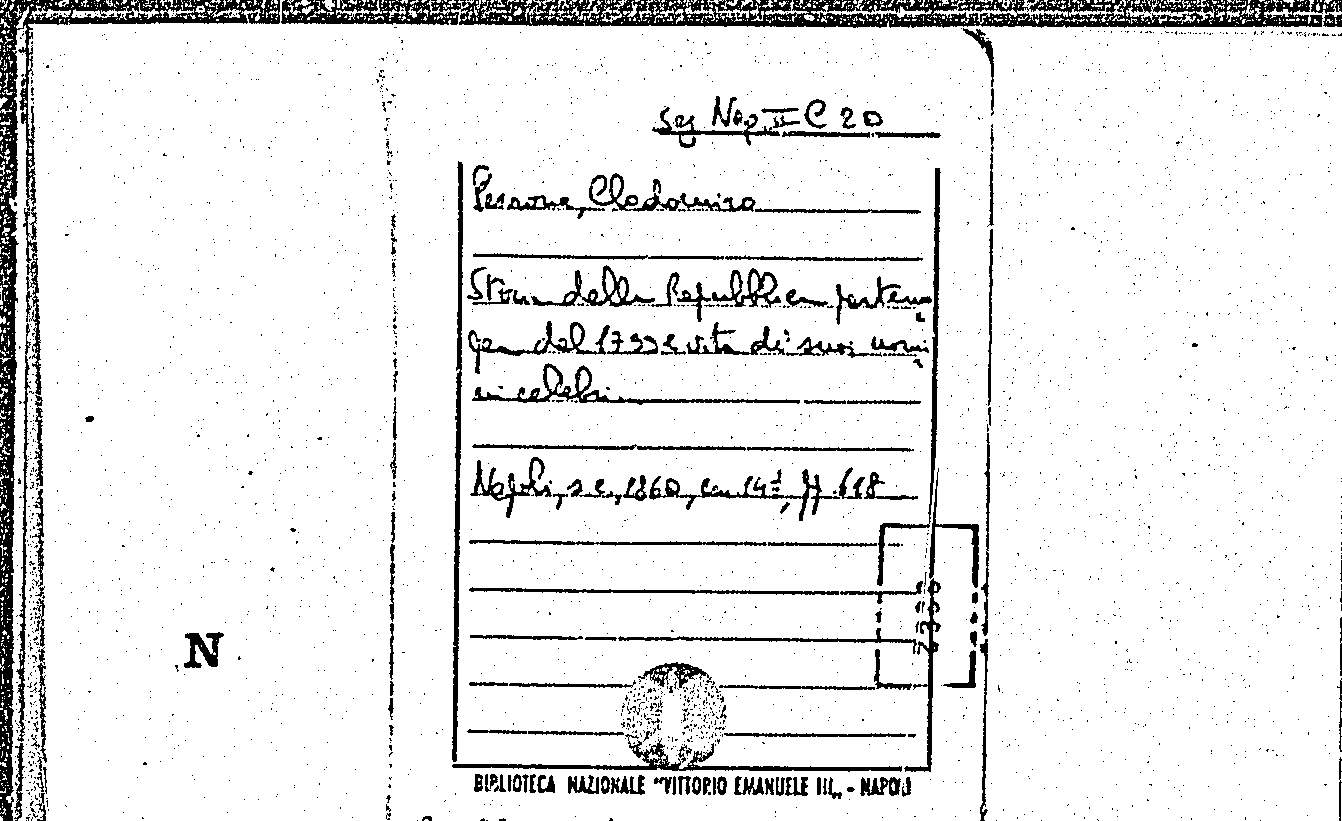 sez Nap II C 20
Perrone, Clodomiro
Storia della Repubblica parteno
pea del 1799 e vita di suoi uomi
ni celebri
Napoli, s.e., 1860, in 14°, pp. 618
N
BIBLIOTECA NAZIONALE "VITTORIO EMANUELE III„ - NAPOLI